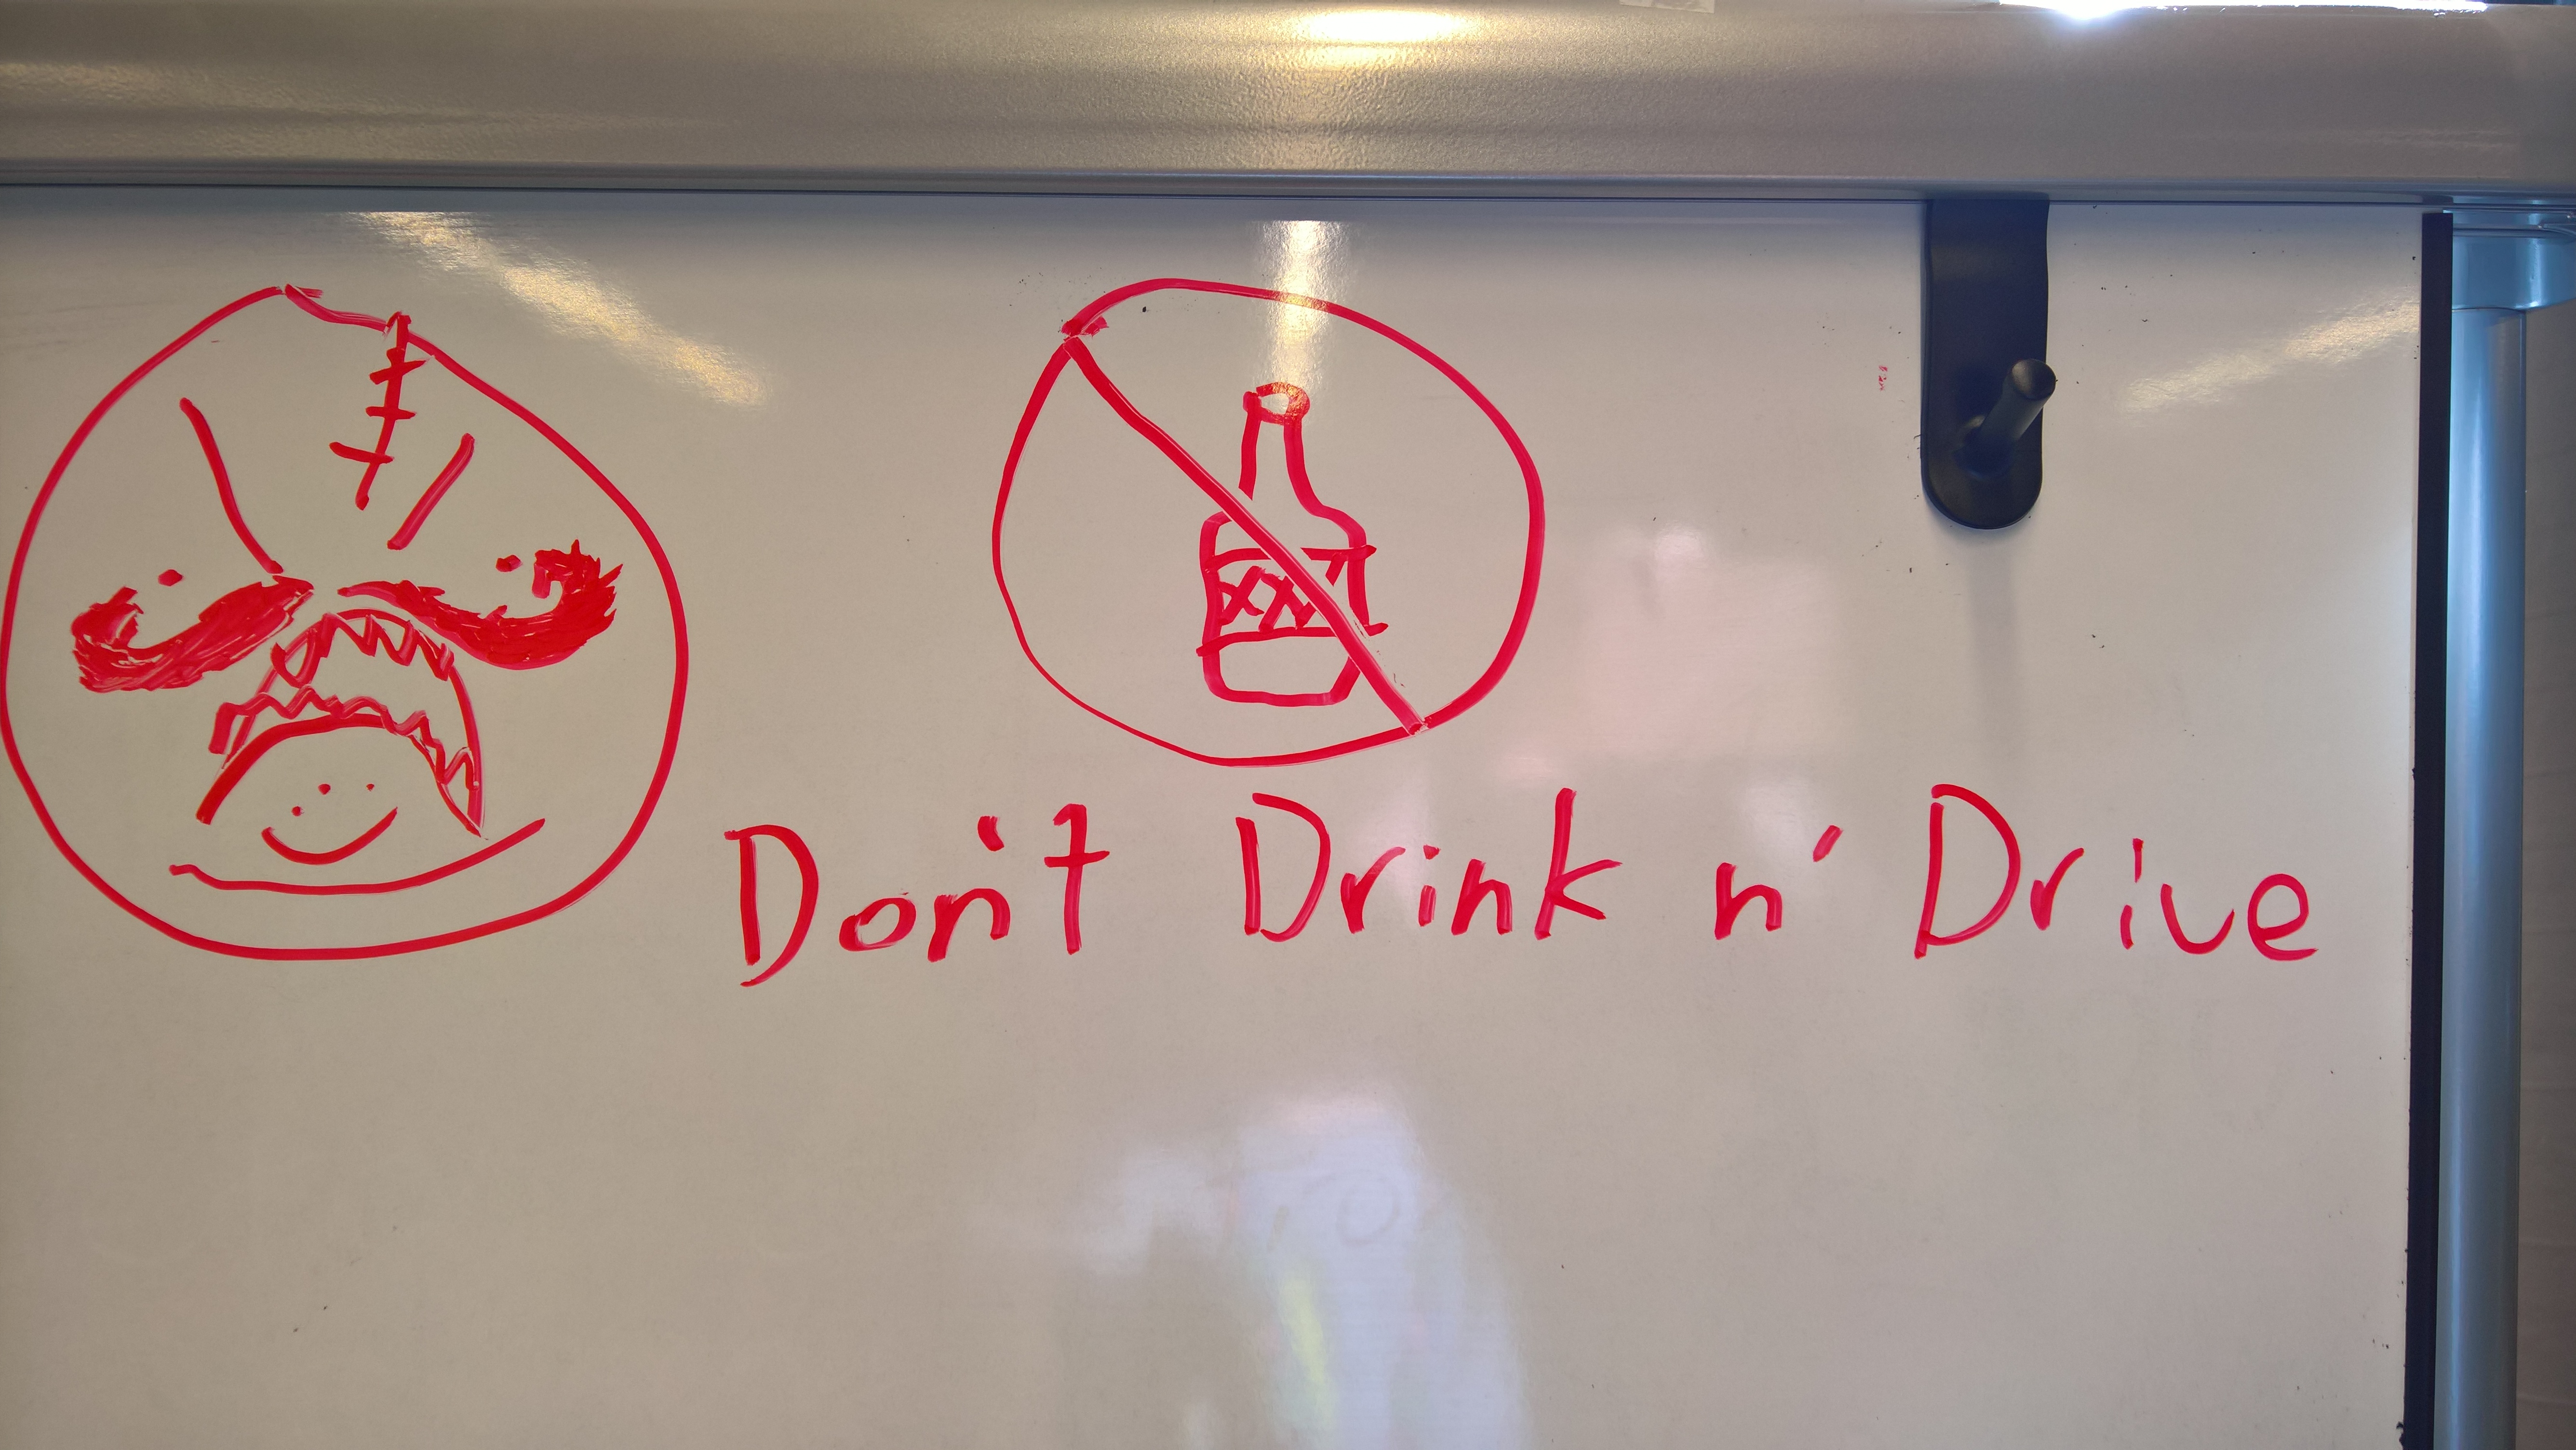 XXX
Don't Drink n' Drive